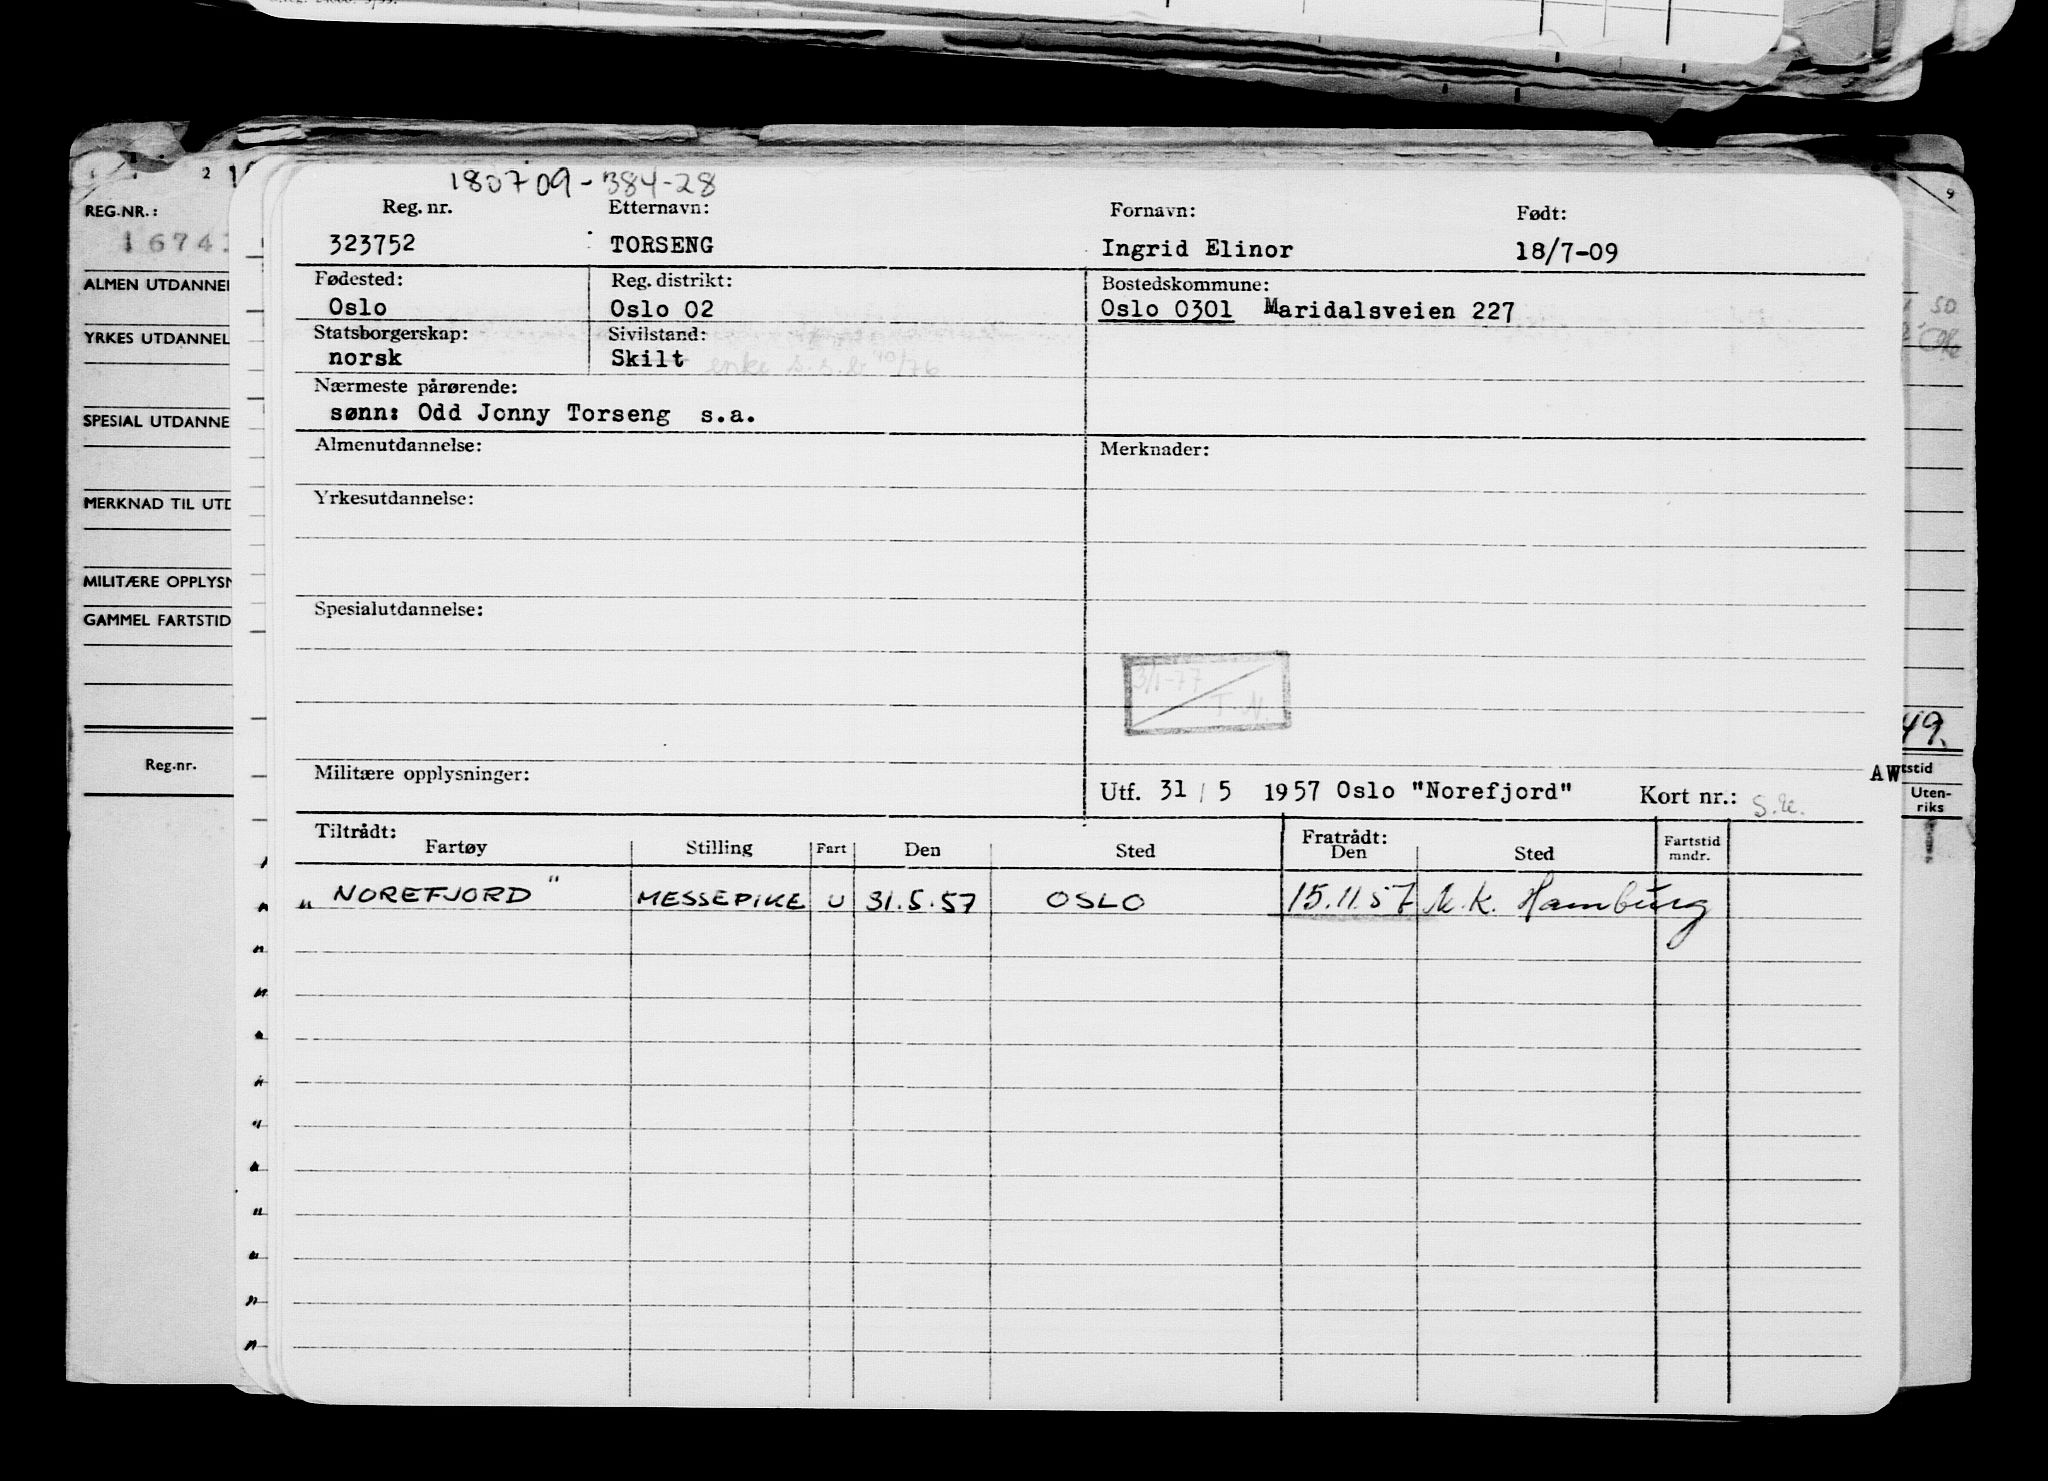 180709-384-28
Reg. nr. Etternavn: Fornavn: Født:
323752 TORSENG Ingrid Elinor 18/7-09
Fødested: Reg. distrikt: Bostedskommune:
Oslo Oslo 02 Oslo 0301 Maridalsveien 227
Statsborgerskap: Sivilstand:
norsk Skilt enke
Nærmeste pårørende:
sønn: Odd Jonny Torseng s.a.
Almenutdannelse: Merknader:
Yrkesutdannelse:
Spesialutdannelse:
3/1-77
T.N.
Militære opplysninger:
Utf. 31/5 1957 Oslo "Norefjord" Kort nr.:
Tiltrådt: Fratrådt:
Fartøy Stilling Fart Den Sted Den Sted Fartstid mndr.
"NOREFJORD" MESSEPIKE U 31.5.57 OSLO 15.11.57 M.K. Hamburg
REG.NR.:
1674
ALMEN UTDANNEL
YRKES UTDANNEL
SPESIAL UTDANNE
MERKNAD TIL UTD
MILITÆRE OPPLYSN
GAMMEL FARTSTID
Reg.nr.
2
9
50
49.
AW
tstid
Uten-
riks